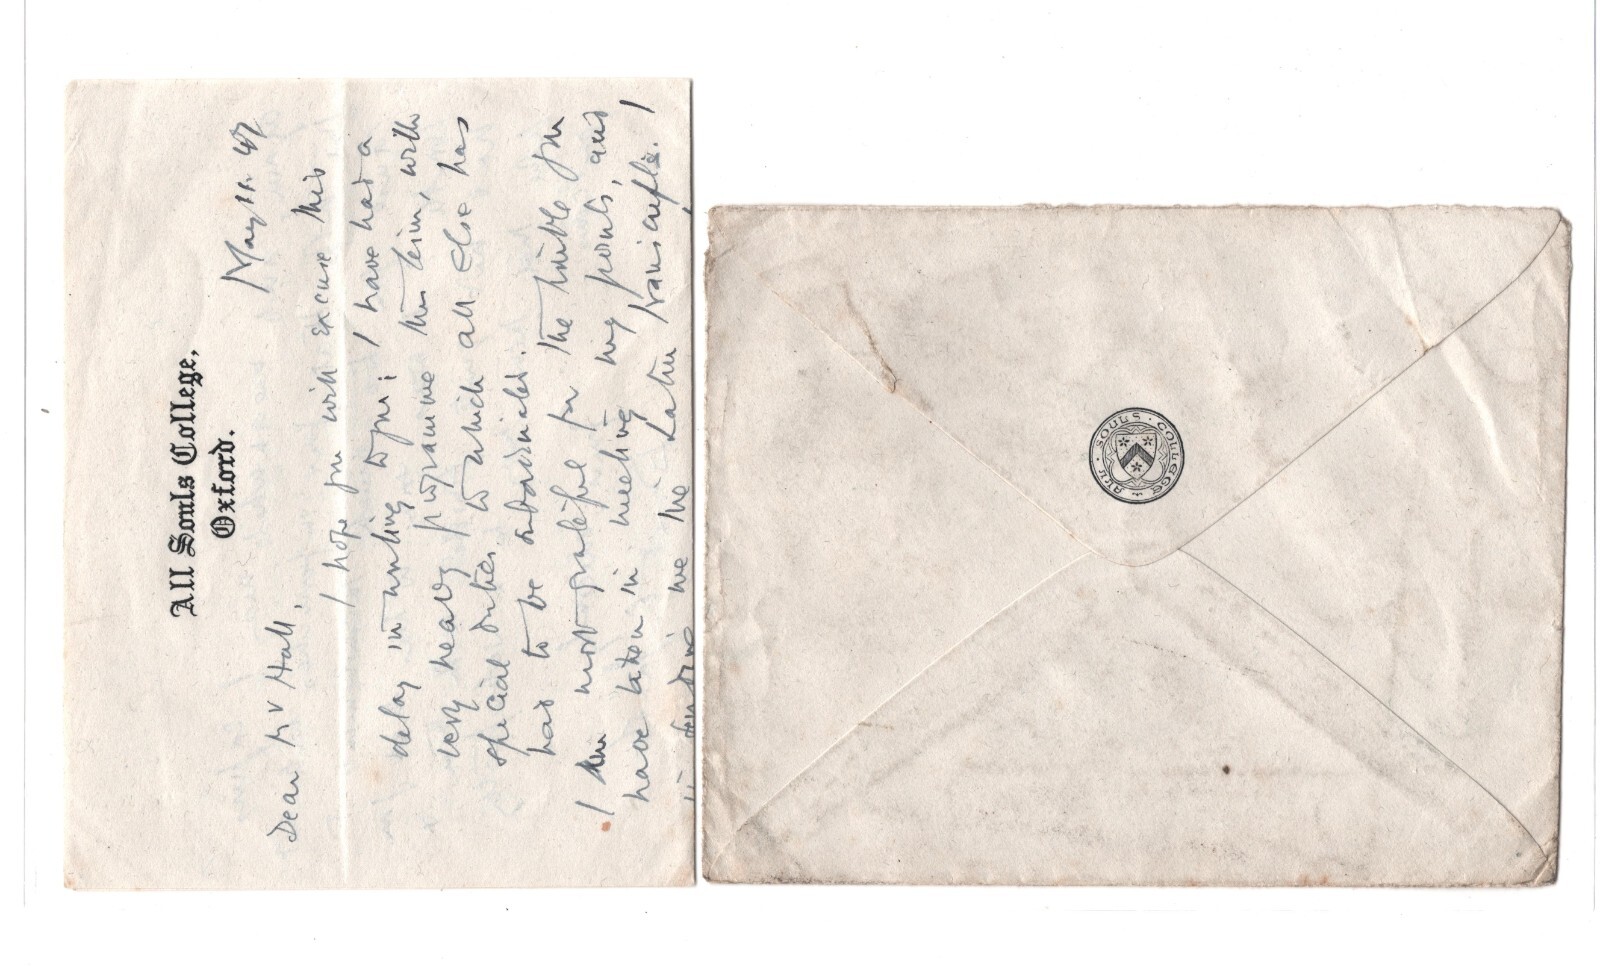 All Souls College,
Oxford.
May 11. 47
Dear Mr Hall,
I hope you will excuse this
delay in writing to you: I have had a
very heavy programme this term, with
special duties to which all else has
had to be subordinated.
I am most grateful for the trouble you
have taken in meeting my points, and
in sending me the Latin transcripts. I
ALL · SOULS · COLLEGE